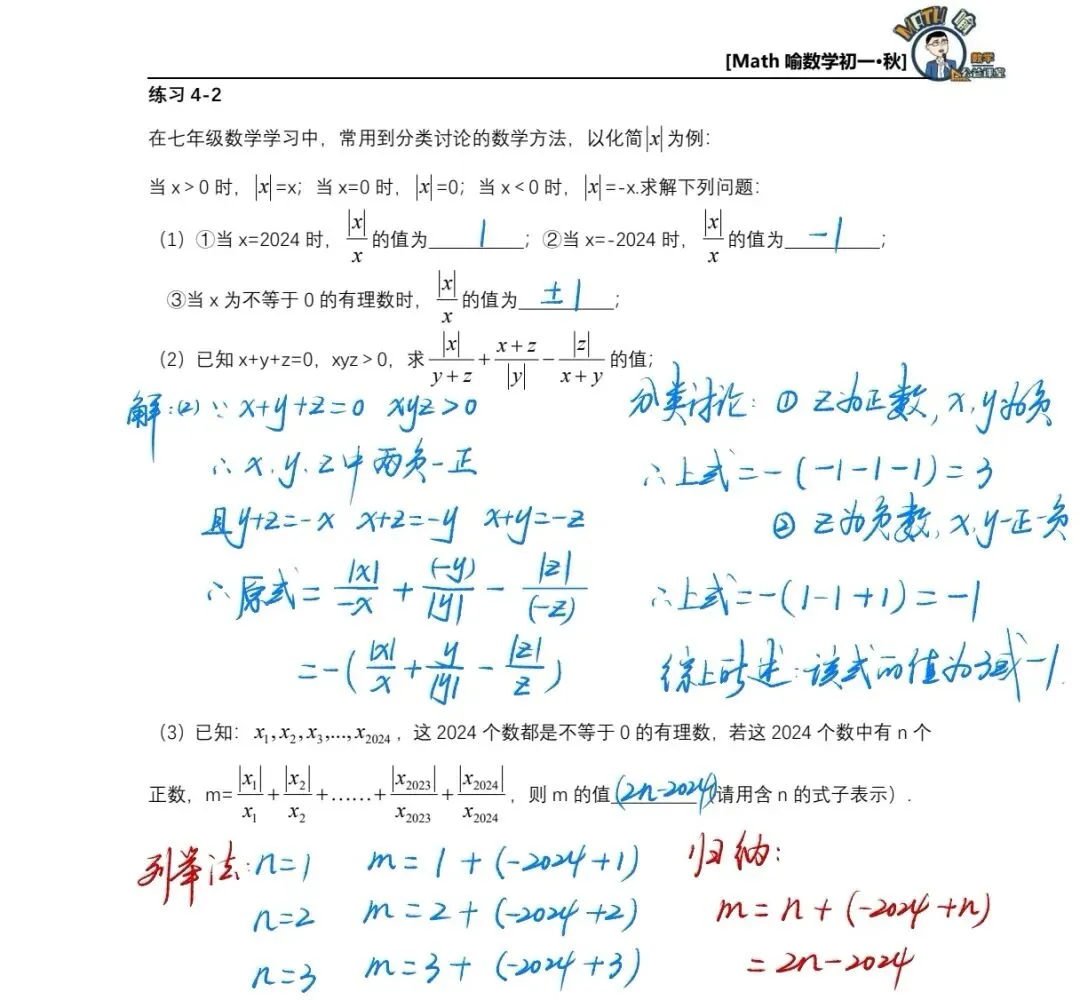 MATH 喻
数学
公益课堂
[Math 喻数学初一•秋]
练习 4-2
在七年级数学学习中，常用到分类讨论的数学方法，以化简|x|为例：
当 x＞0 时，|x|=x；当 x=0 时，|x|=0；当 x＜0 时，|x|=-x.求解下列问题：
（1）①当 x=2024 时，|x|/x 的值为 1 ；②当 x=-2024 时，|x|/x 的值为 -1 ；
③当 x 为不等于 0 的有理数时，|x|/x 的值为 ±1 ；
（2）已知 x+y+z=0，xyz＞0，求 |x|/(y+z) + (x+z)/|y| − |z|/(x+y) 的值；
解:(2) ∵ x+y+z=0 xyz>0
∴ x、y、z中两负一正
且y+z=-x x+z=-y x+y=-z
∴原式= |x|/-x + (-y)/|y| - |z|/(-z)
=-(|x|/x + y/|y| - |z|/z)
分类讨论: ① z为正数, x, y为负
∴上式=-(-1-1-1)=3
② z为负数, x, y一正一负
∴上式=-(1-1+1)=-1
综上所述:该式的值为3或-1.
（3）已知：x₁,x₂,x₃,...,x₂₀₂₄，这 2024 个数都是不等于 0 的有理数，若这 2024 个数中有 n 个
正数，m=|x₁|/x₁+|x₂|/x₂+……+|x₂₀₂₃|/x₂₀₂₃+|x₂₀₂₄|/x₂₀₂₄，则 m 的值 (2n-2024) (请用含 n 的式子表示）.
列举法: n=1 m=1+(-2024+1)
n=2 m=2+(-2024+2)
n=3 m=3+(-2024+3)
归纳:
m=n+(-2024+n)
=2n-2024